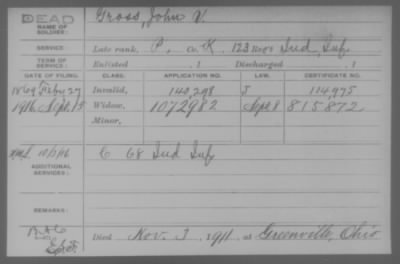 DEAD
NAME OF SOLDIER: Gross, John V.
SERVICE: Late rank, P, Co. K, 123 Reg't Ind. Inf.
TERM OF SERVICE: Enlisted , 1 Discharged , 1
DATE OF FILING. CLASS. APPLICATION NO. LAW. CERTIFICATE NO.
1869 27 Invalid, 140298 114,975
1916 Sept. 5 Widow, 1072982 Sept 8 815872
Minor,
ADDITIONAL SERVICES: C 68 Ind Inf
REMARKS:
Died Nov. 3, 1911, at Greenville, Ohio